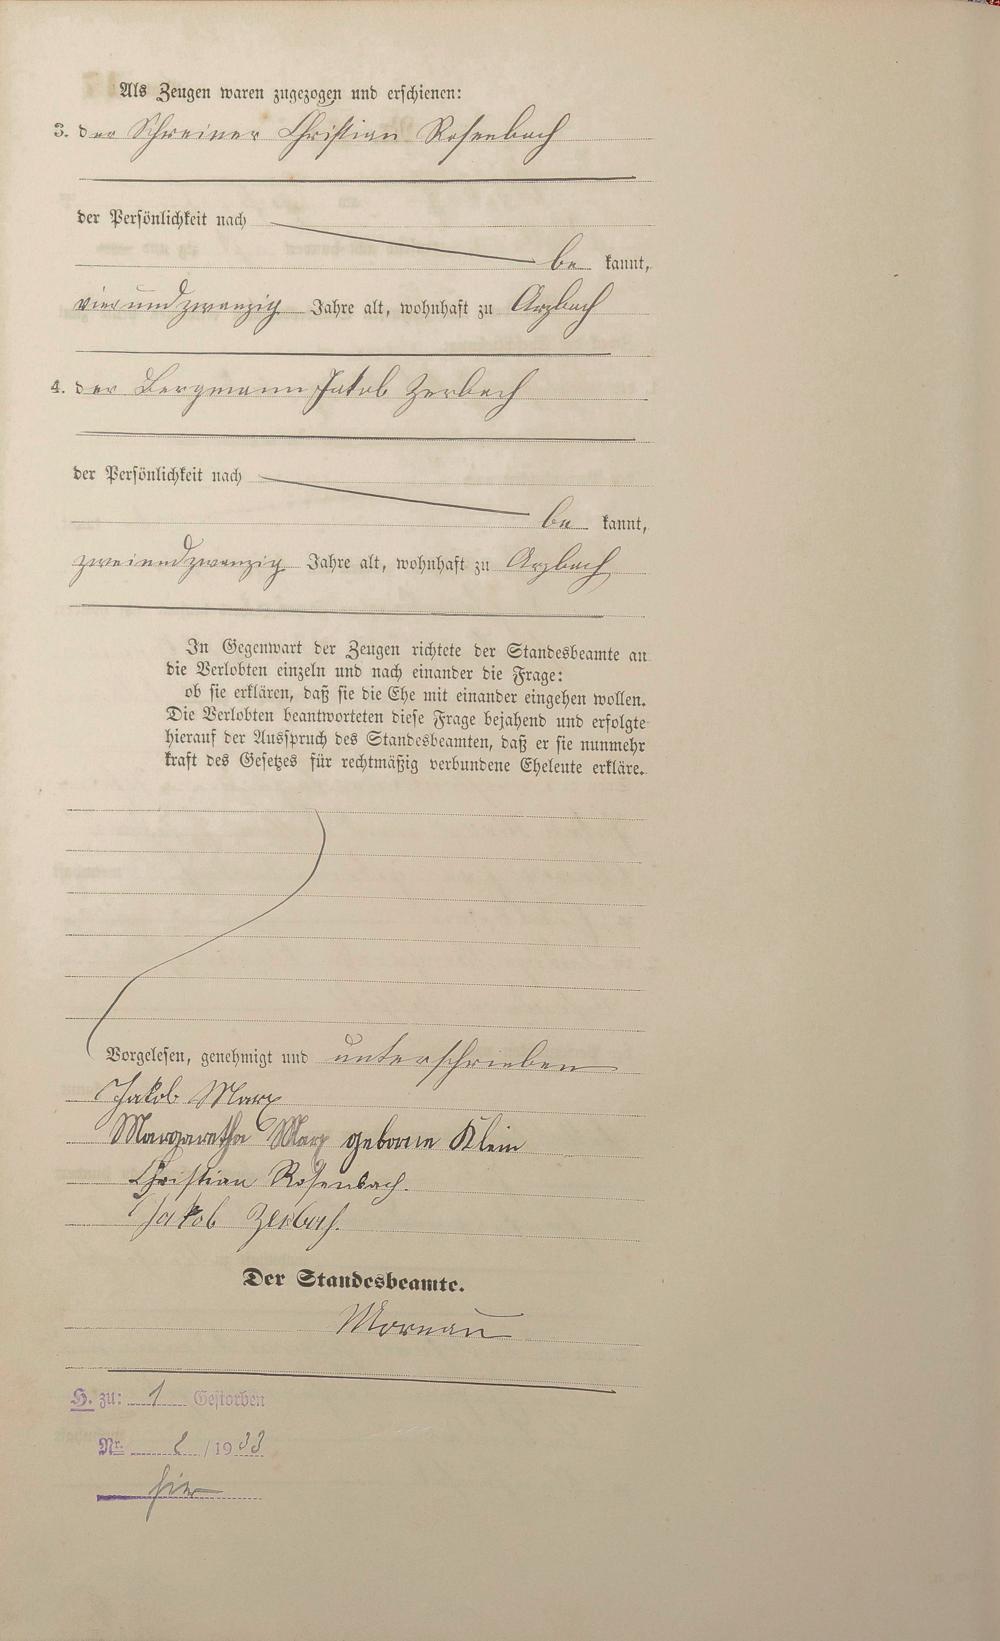 Als Zeugen waren zugezogen und erschienen:
3. der Schreiner Christian Rosenbach
der Persönlichkeit nach
be kannt,
vierundzwanzig Jahre alt, wohnhaft zu Arzbach
4. der Bergmann Jakob Zerbach
der Persönlichkeit nach
be kannt,
zweiundzwanzig Jahre alt, wohnhaft zu Arzbach
In Gegenwart der Zeugen richtete der Standesbeamte an
die Verlobten einzeln und nach einander die Frage:
ob sie erklären, daß sie die Ehe mit einander eingehen wollen.
Die Verlobten beantworteten diese Frage bejahend und erfolgte
hierauf der Ausspruch des Standesbeamten, daß er sie nunmehr
kraft des Gesetzes für rechtmäßig verbundene Eheleute erkläre.
Vorgelesen, genehmigt und unterschrieben
Jakob Marx
Margaretha Marx geborne Klein
Christian Rosenbach.
Jakob Zerbach.
Der Standesbeamte.
Mornau
H. zu: 1 Gestorben
Nr. /1933
hier